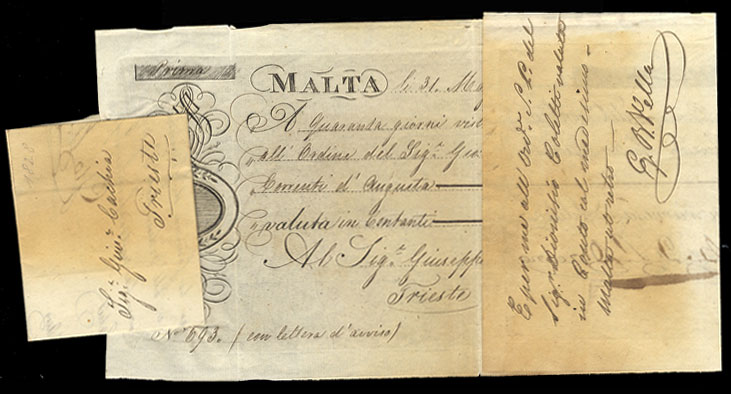 Prima
MALTA li 31. Mag
A Quaranta giorni vist
all' Ordine del Sigr. Gio
Correnti d'Augusta
valuta in Contanti
Al Sigr. Giuseppe
Trieste
No. 693. (con lettera d'avviso)
Sigr. Giuse. Cachia
Trieste
E per me all' Ord. S. P. del
Sigr. Dionisio valuta
in Conto col medesimo
Malta ut retro
G. B. Vella